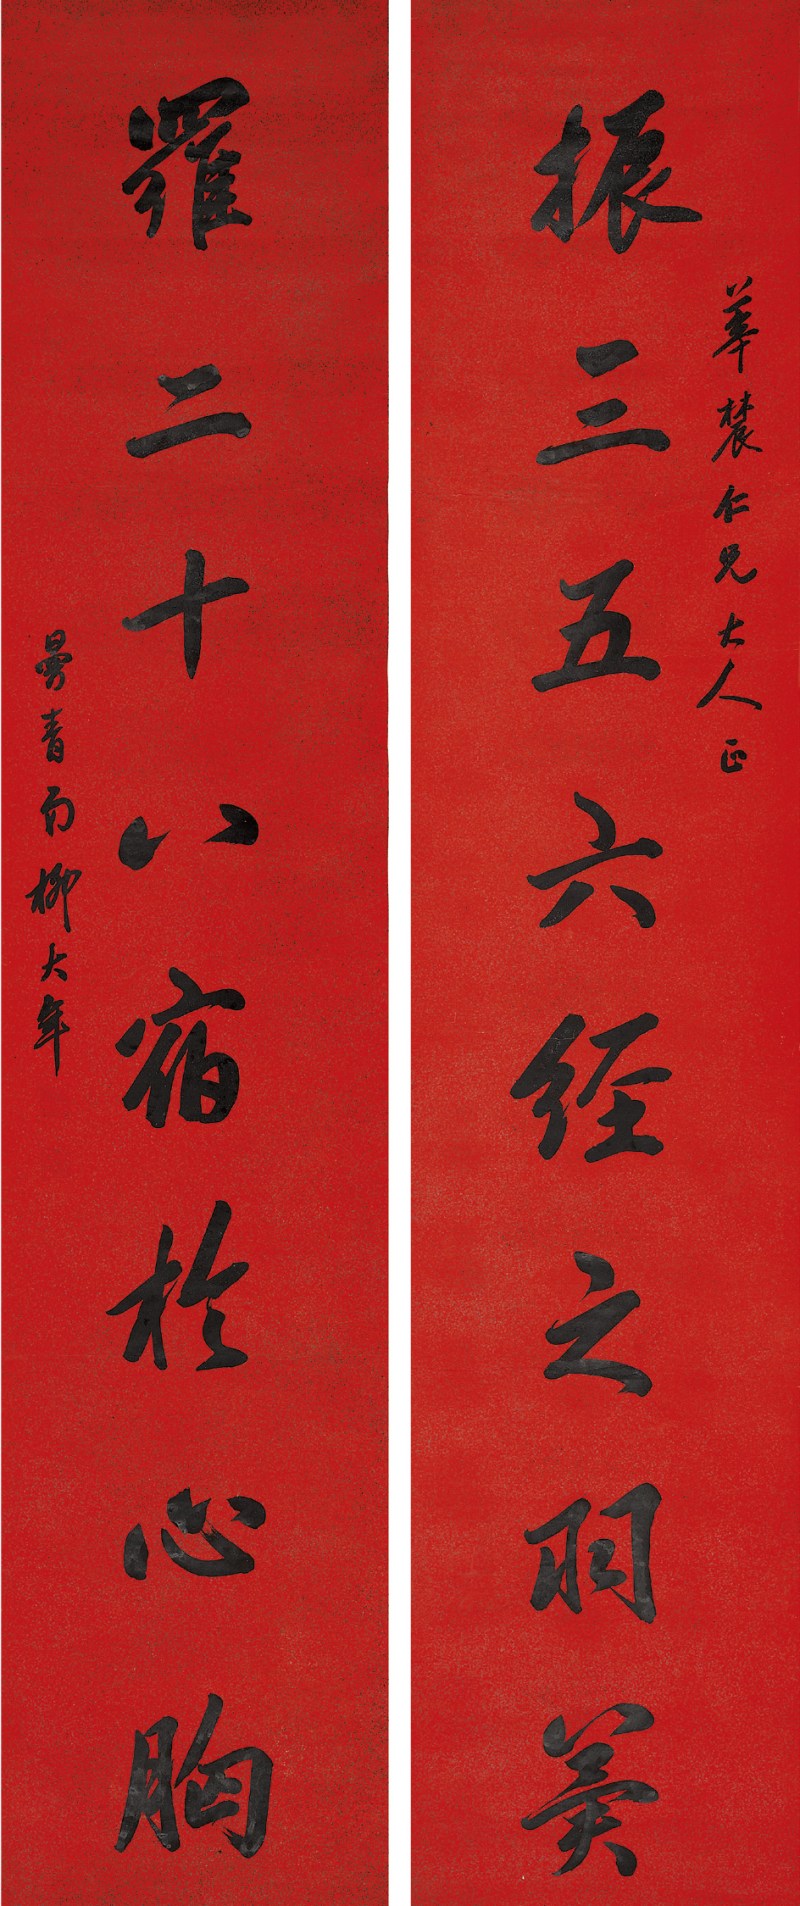 振三五六經之羽翼
華農仁兄大人正
羅二十八宿於心胸
曼青弟柳大年